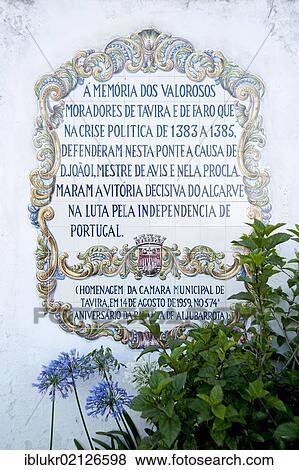 A MEMÓRIA DOS VALOROSOS
MORADORES DE TAVIRA E DE FARO QUE
NA CRISE POLITICA DE 1383 A 1385,
DEFENDERAM NESTA PONTE A CAUSA DE
D. JOÃO I, MESTRE DE AVIS E NELA PROCLA.
MARAM A VITÓRIA DECISIVA DO ALGARVE
NA LUTA PELA INDEPENDENCIA DE
PORTUGAL.
(HOMENAGEM DA CAMARA MUNICIPAL DE
TAVIRA, EM 14 DE AGOSTO DE 1959, NO 574º
ANIVERSÁRIO DA BATALHA DE ALJUBARROTA)
iblukr02126598 www.fotosearch.com